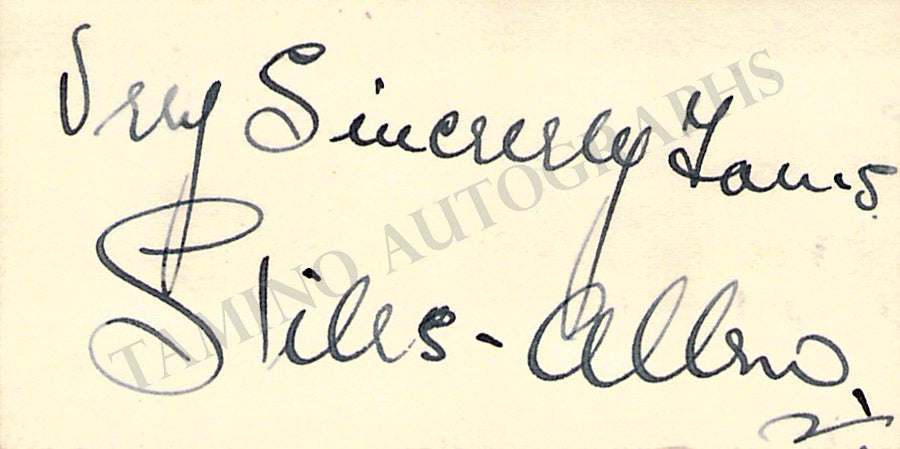 Very Sincerely Yours
Stiles-Allen.
TAMINO AUTOGRAPHS